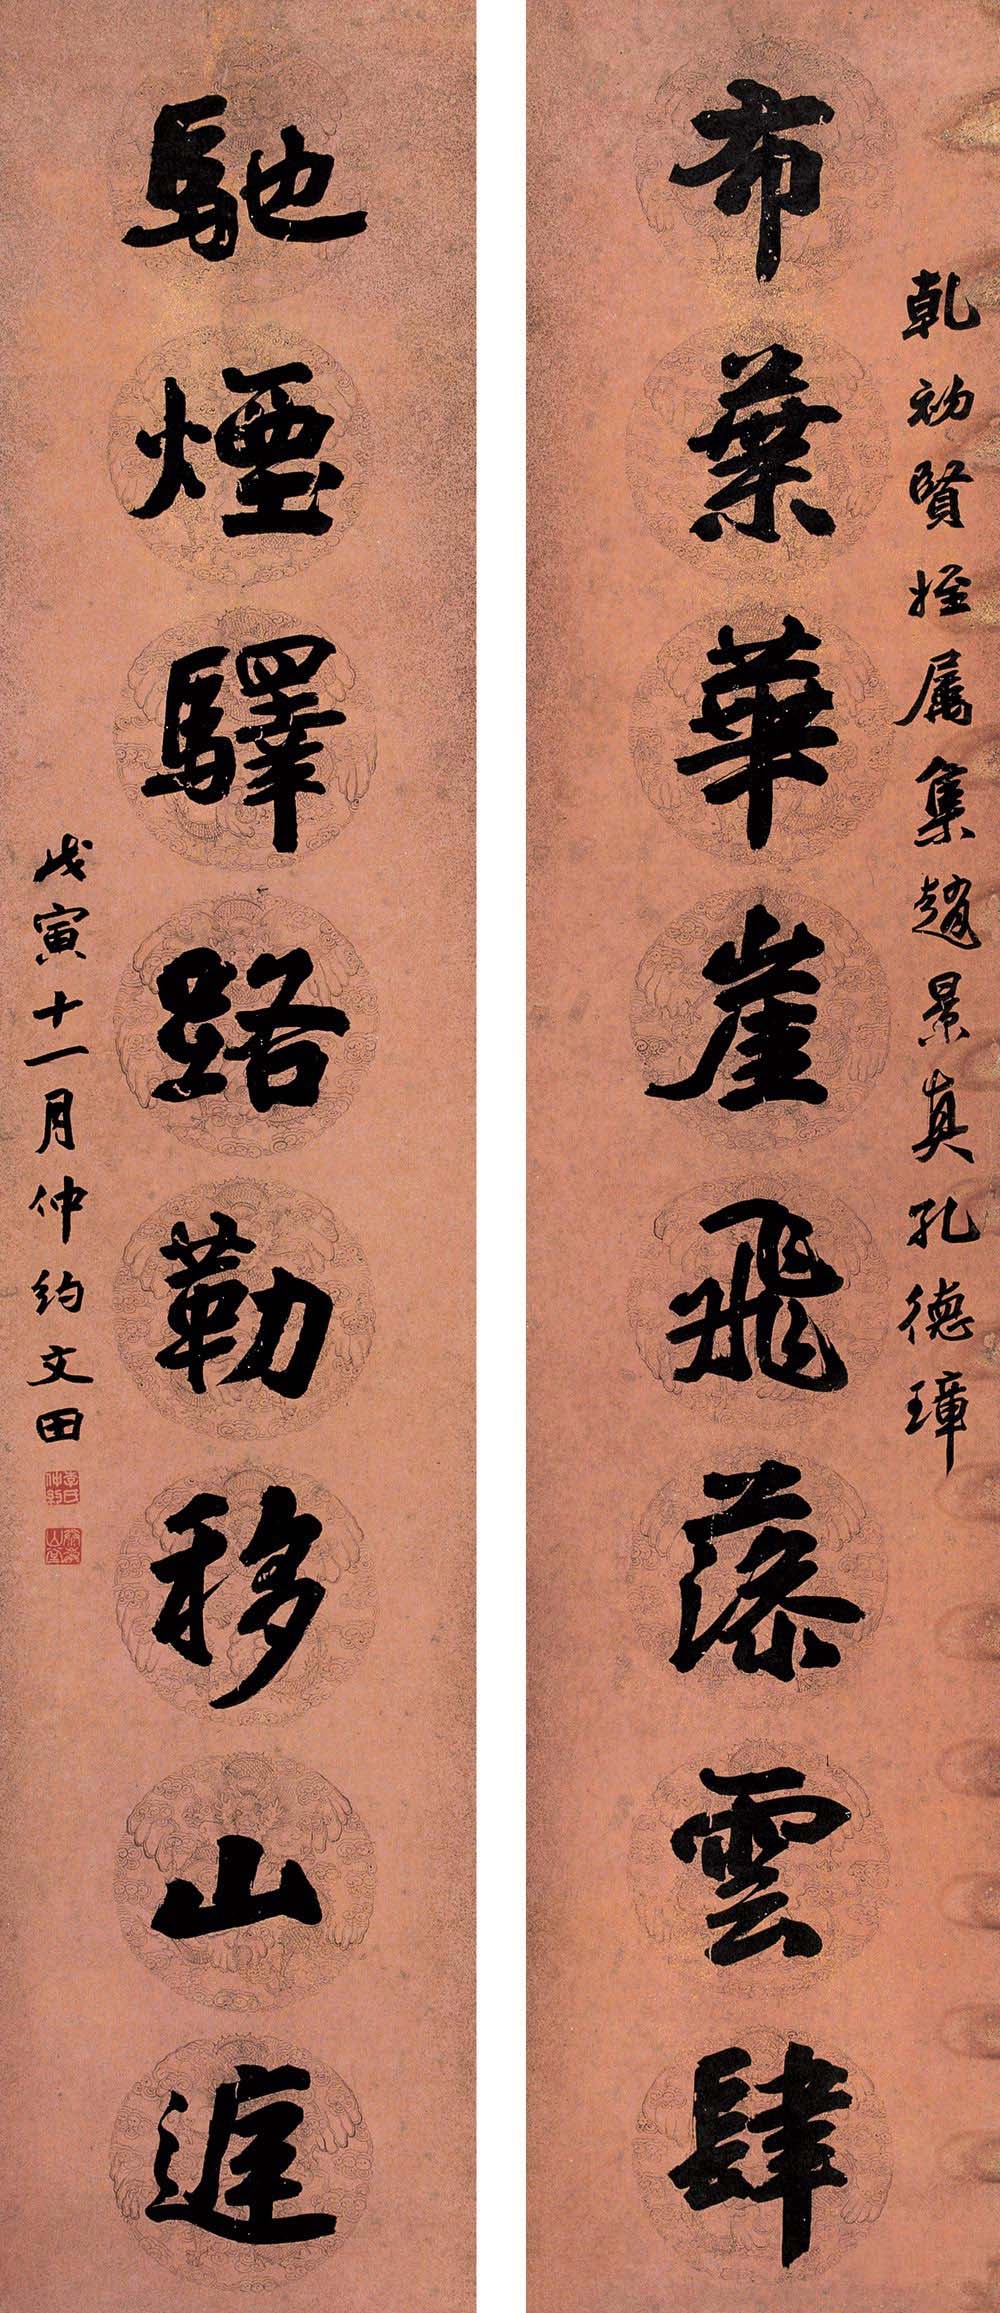 乾初賢姪属集趙景真孔德璋
布葉華崖飛藻雲肆
馳煙驛路勒移山庭
戊寅十一月仲約文田
李氏仲約